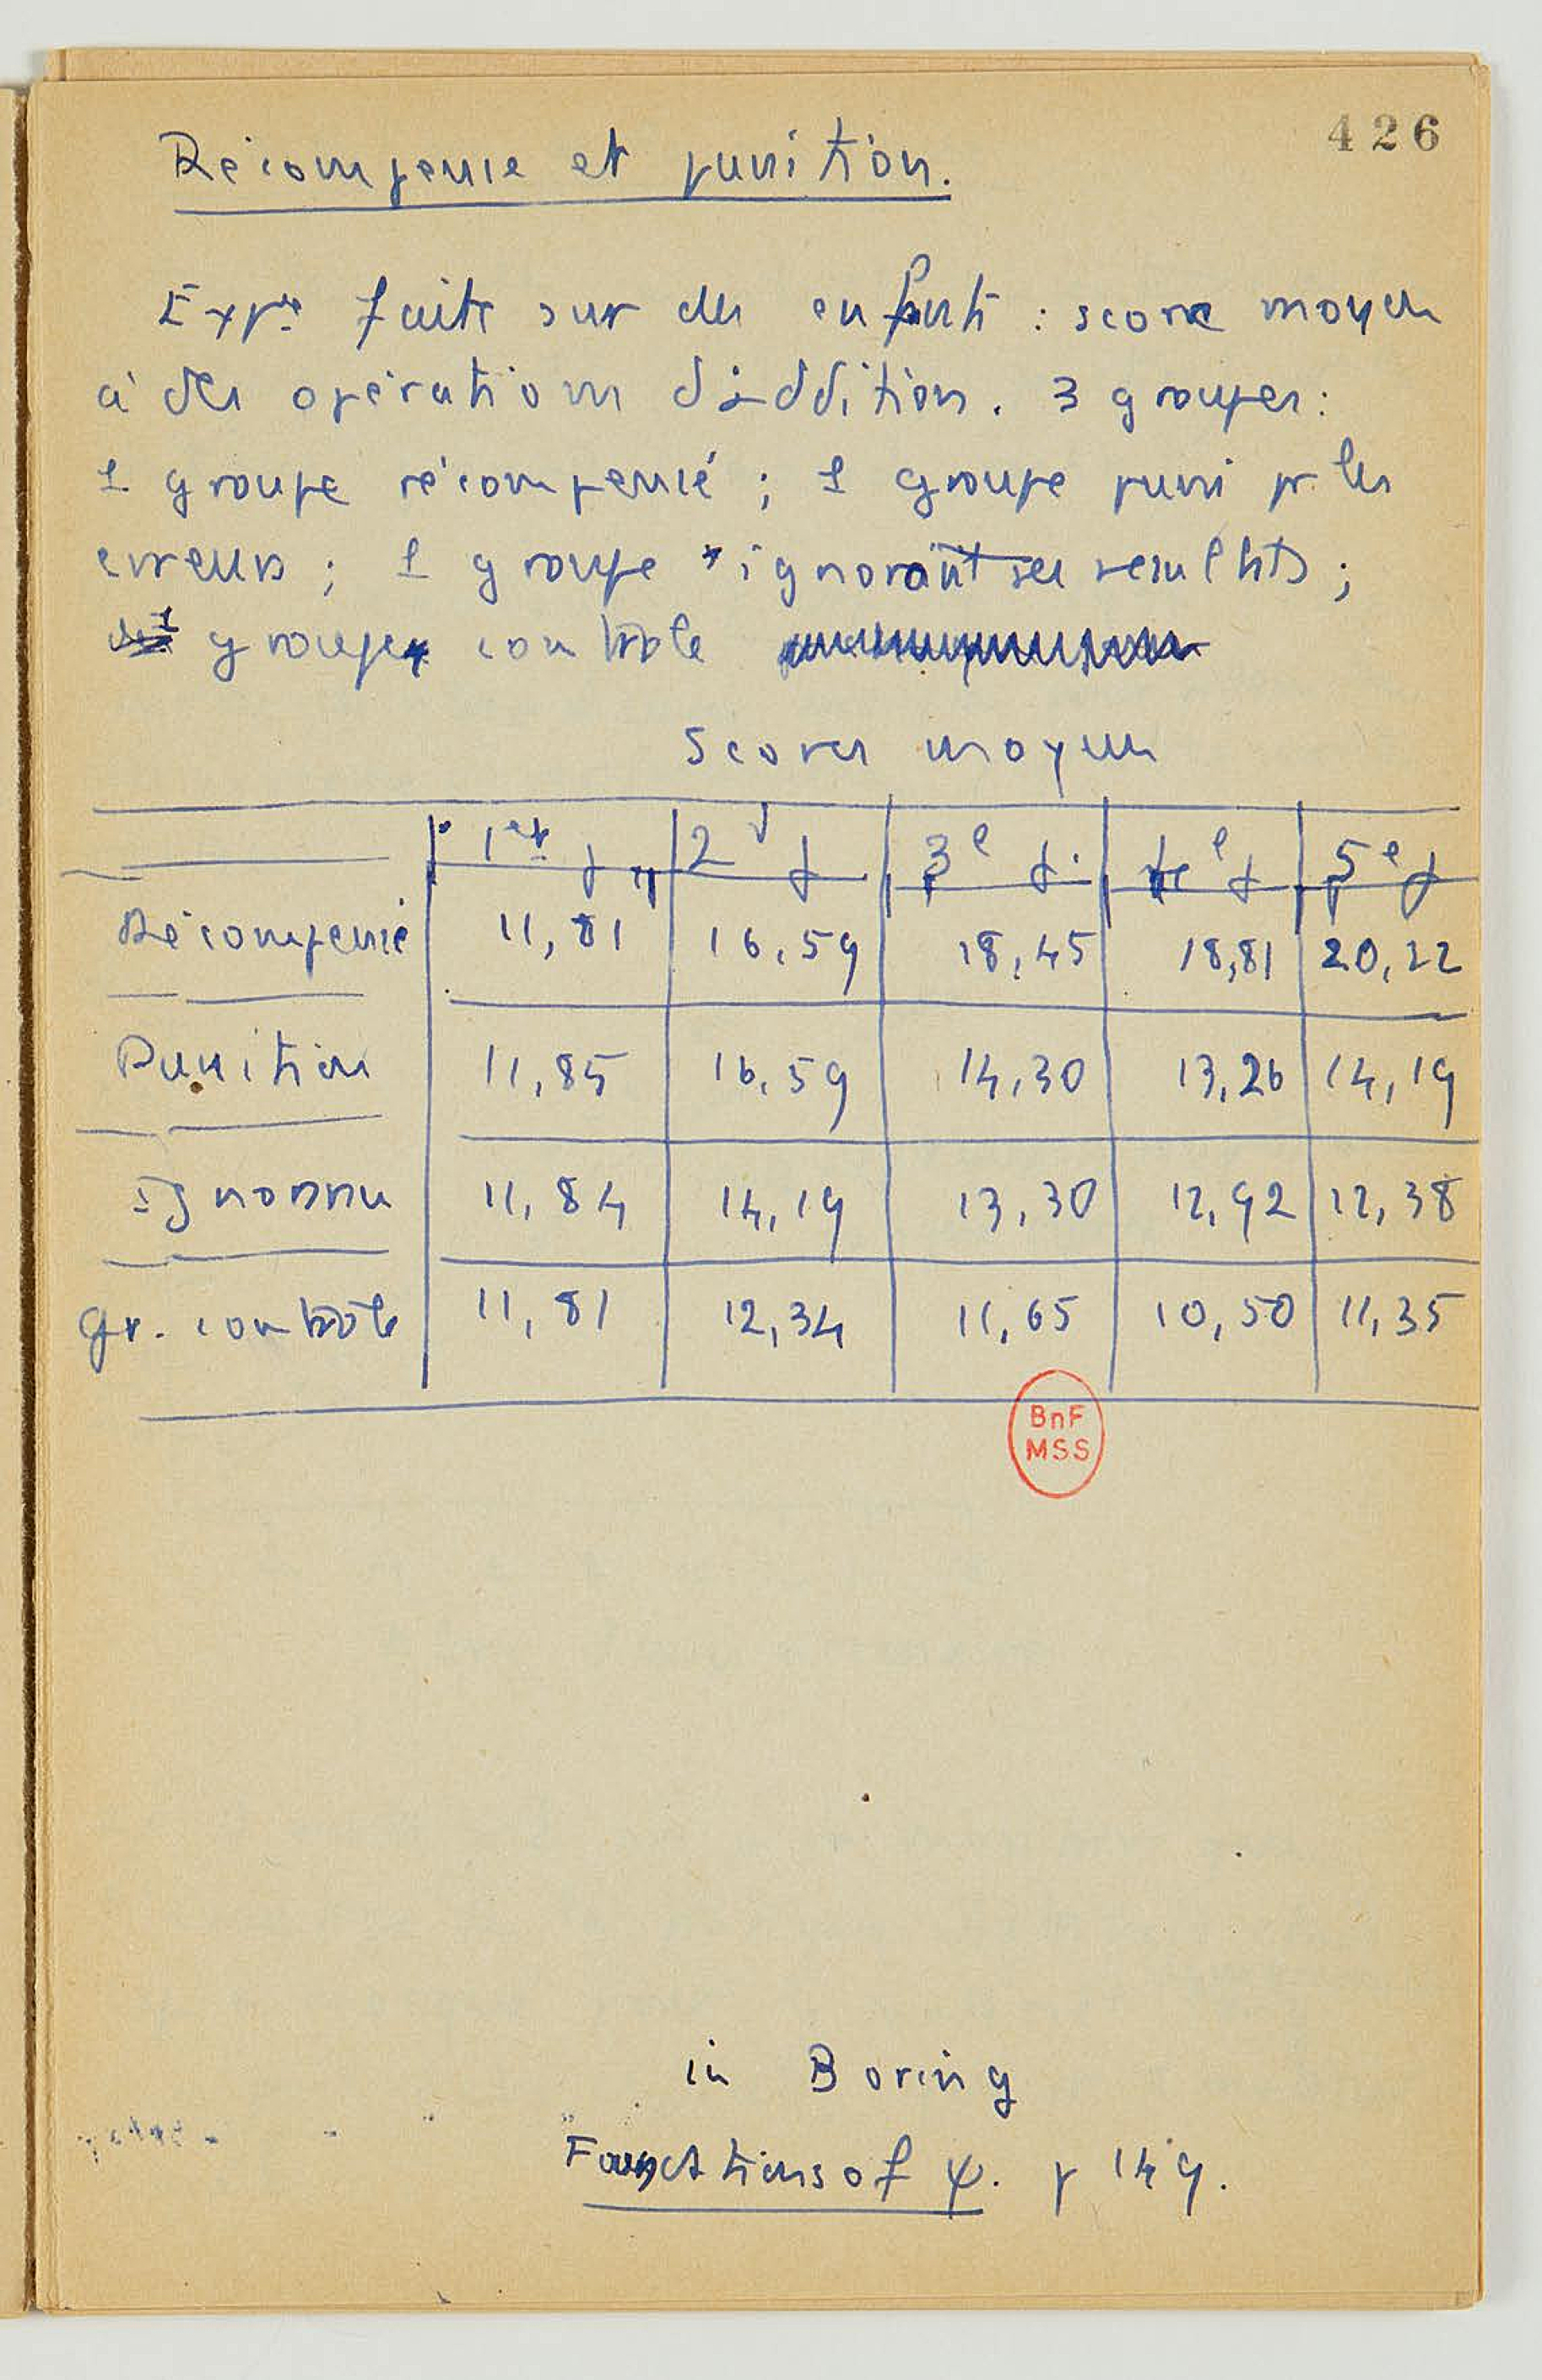 426
Récompense et punition.
Expce faite sur des enfants : score moyen
à des opérations d'addition. 3 groupes :
1 groupe récompensé ; 1 groupe puni pr les
erreurs ; 1 groupe ignorant ses resultats ;
1 groupe contrôle
Scores moyens
1er j 2d j 3e j. 4e j 5e j
Récompensé 11,81 16,59 18,45 18,81 20,22
Punition 11,85 16,59 14,30 13,26 14,19
Ignorance 11,84 14,19 13,30 12,92 12,38
gr. contrôle 11,81 12,34 11,65 10,50 11,35
BnF
MSS
in Boring
Functions of ψ. p 149.